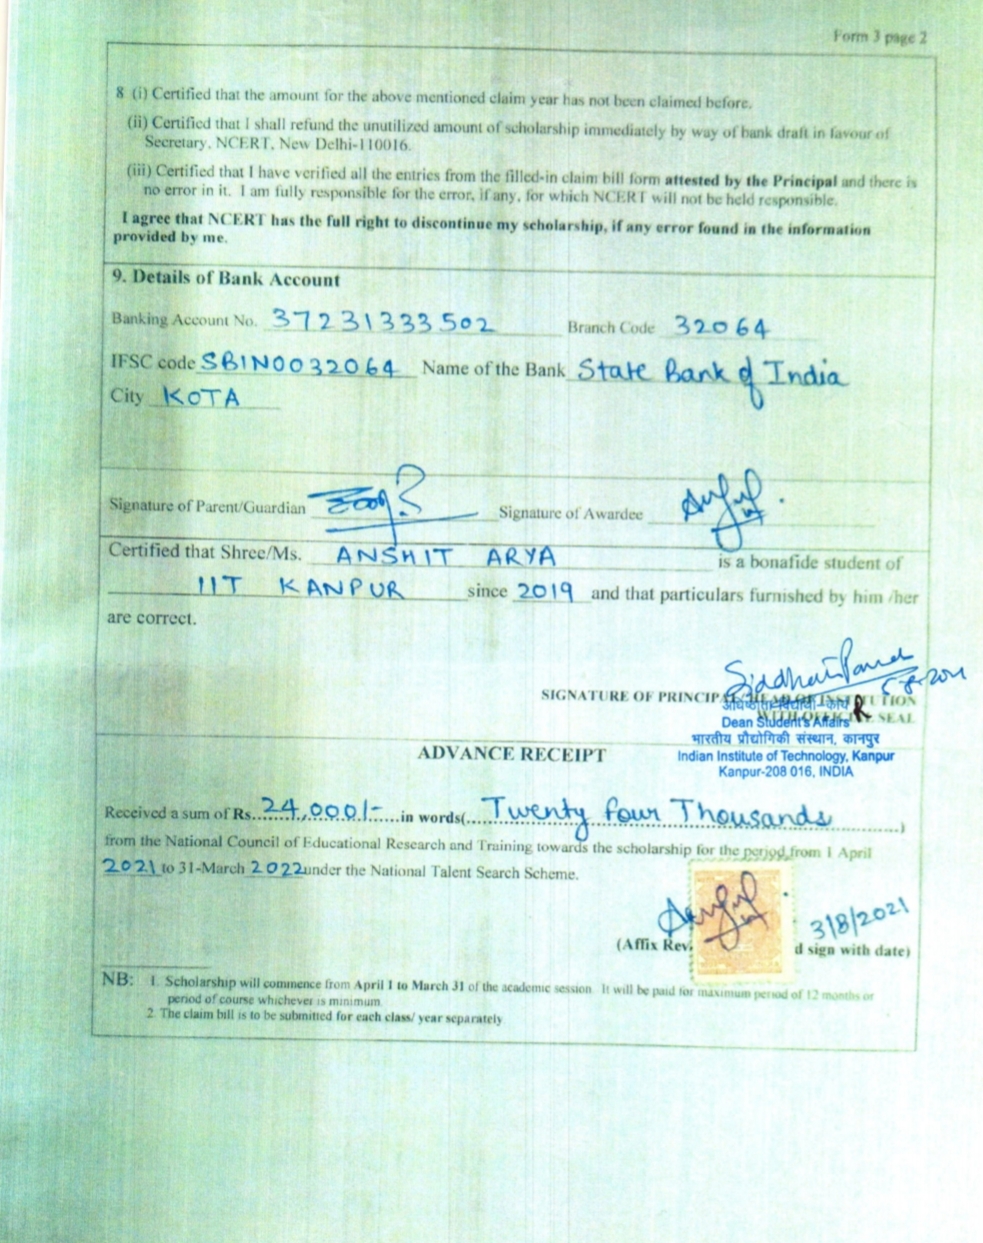 Form 3 page 2
8 (i) Certified that the amount for the above mentioned claim year has not been claimed before.
(ii) Certified that I shall refund the unutilized amount of scholarship immediately by way of bank draft in favour of
Secretary, NCERT, New Delhi-110016.
(iii) Certified that I have verified all the entries from the filled-in claim bill form attested by the Principal and there is
no error in it. I am fully responsible for the error, if any, for which NCERT will not be held responsible.
I agree that NCERT has the full right to discontinue my scholarship, if any error found in the information
provided by me.
9. Details of Bank Account
Banking Account No. 37231333502 Branch Code 32064
IFSC code SBIN0032064 Name of the Bank State Bank of India
City KOTA
Signature of Parent/Guardian Signature of Awardee
Certified that Shree/Ms. ANSHIT ARYA is a bonafide student of
IIT KANPUR since 2019 and that particulars furnished by him /her
are correct.
SIGNATURE OF PRINCIPAL/HEAD OF INSTITUTION
WITH OFFICIAL SEAL
अधिष्ठाता-विद्यार्थी-कार्य
Dean Student's Affairs
भारतीय प्रौद्योगिकी संस्थान, कानपुर
Indian Institute of Technology, Kanpur
Kanpur-208 016, INDIA
ADVANCE RECEIPT
Received a sum of Rs. 24,000/- in words( Twenty four Thousands )
from the National Council of Educational Research and Training towards the scholarship for the period from 1 April
2021 to 31-March 2022 under the National Talent Search Scheme.
3/8/2021
(Affix Rev. d sign with date)
NB: 1. Scholarship will commence from April 1 to March 31 of the academic session. It will be paid for maximum period of 12 months or
period of course whichever is minimum
2. The claim bill is to be submitted for each class/ year separately